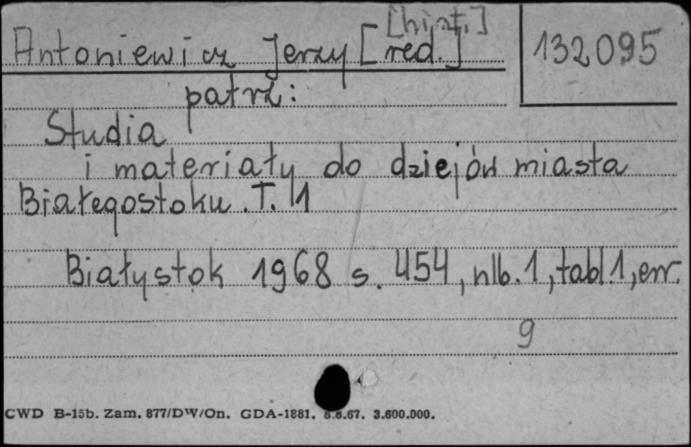 [hist.]
Antoniewicz Jerzy [red.] 132095
patrz:
Studia
i materiały do dziejów miasta
Białegostoku. T. 1
Białystok 1968 s. 454, nlb. 1, tabl. 1, err.
9
CWD B-15b. Zam. 877/DW/On. GDA-1881. 6.6.67. 3.600.000.